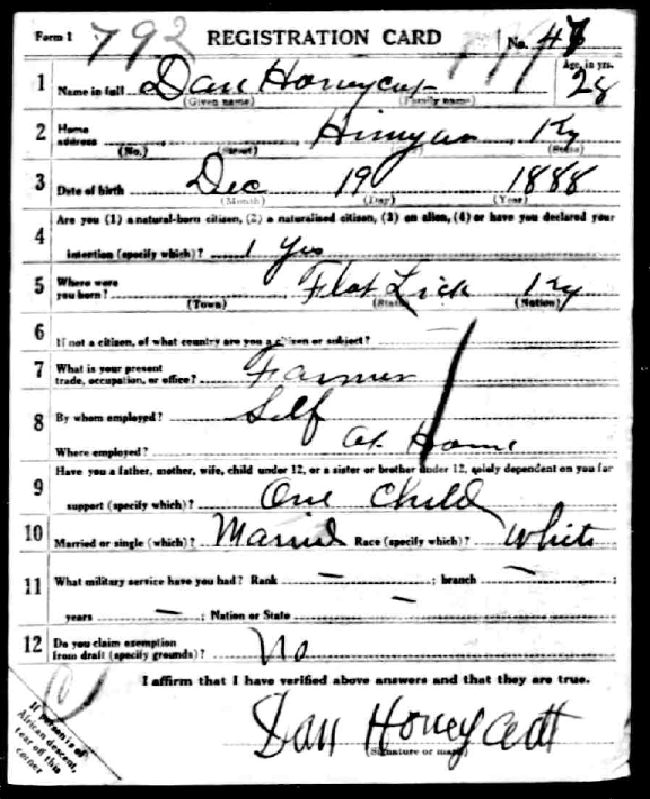 Form 1 792 REGISTRATION CARD No. 47
1 Name in full Dan Honeycut Age, in yrs. 28
(Given name) (Family name)
2 Home address Himyar Ky
(No.) (Street) (State)
3 Date of birth Dec 19 1888
(Month) (Day) (Year)
4 Are you (1) a natural-born citizen, (2) a naturalized citizen, (3) an alien, (4) or have you declared your
intention (specify which)? 1 Yes
5 Where were you born? Flat Lick Ky
(Town) (State) (Nation)
6 If not a citizen, of what country are you a citizen or subject? —
7 What is your present trade, occupation, or office? Farmer
8 By whom employed? Self
Where employed? At Home
9 Have you a father, mother, wife, child under 12, or a sister or brother under 12, solely dependent on you for
support (specify which)? One Child
10 Married or single (which)? Married Race (specify which)? White
11 What military service have you had? Rank — ; branch — ;
years — ; Nation or State —
12 Do you claim exemption from draft (specify grounds)? No
I affirm that I have verified above answers and that they are true.
Dan Honeycutt
(Signature or mark)
If person is of
African descent,
tear off this
corner